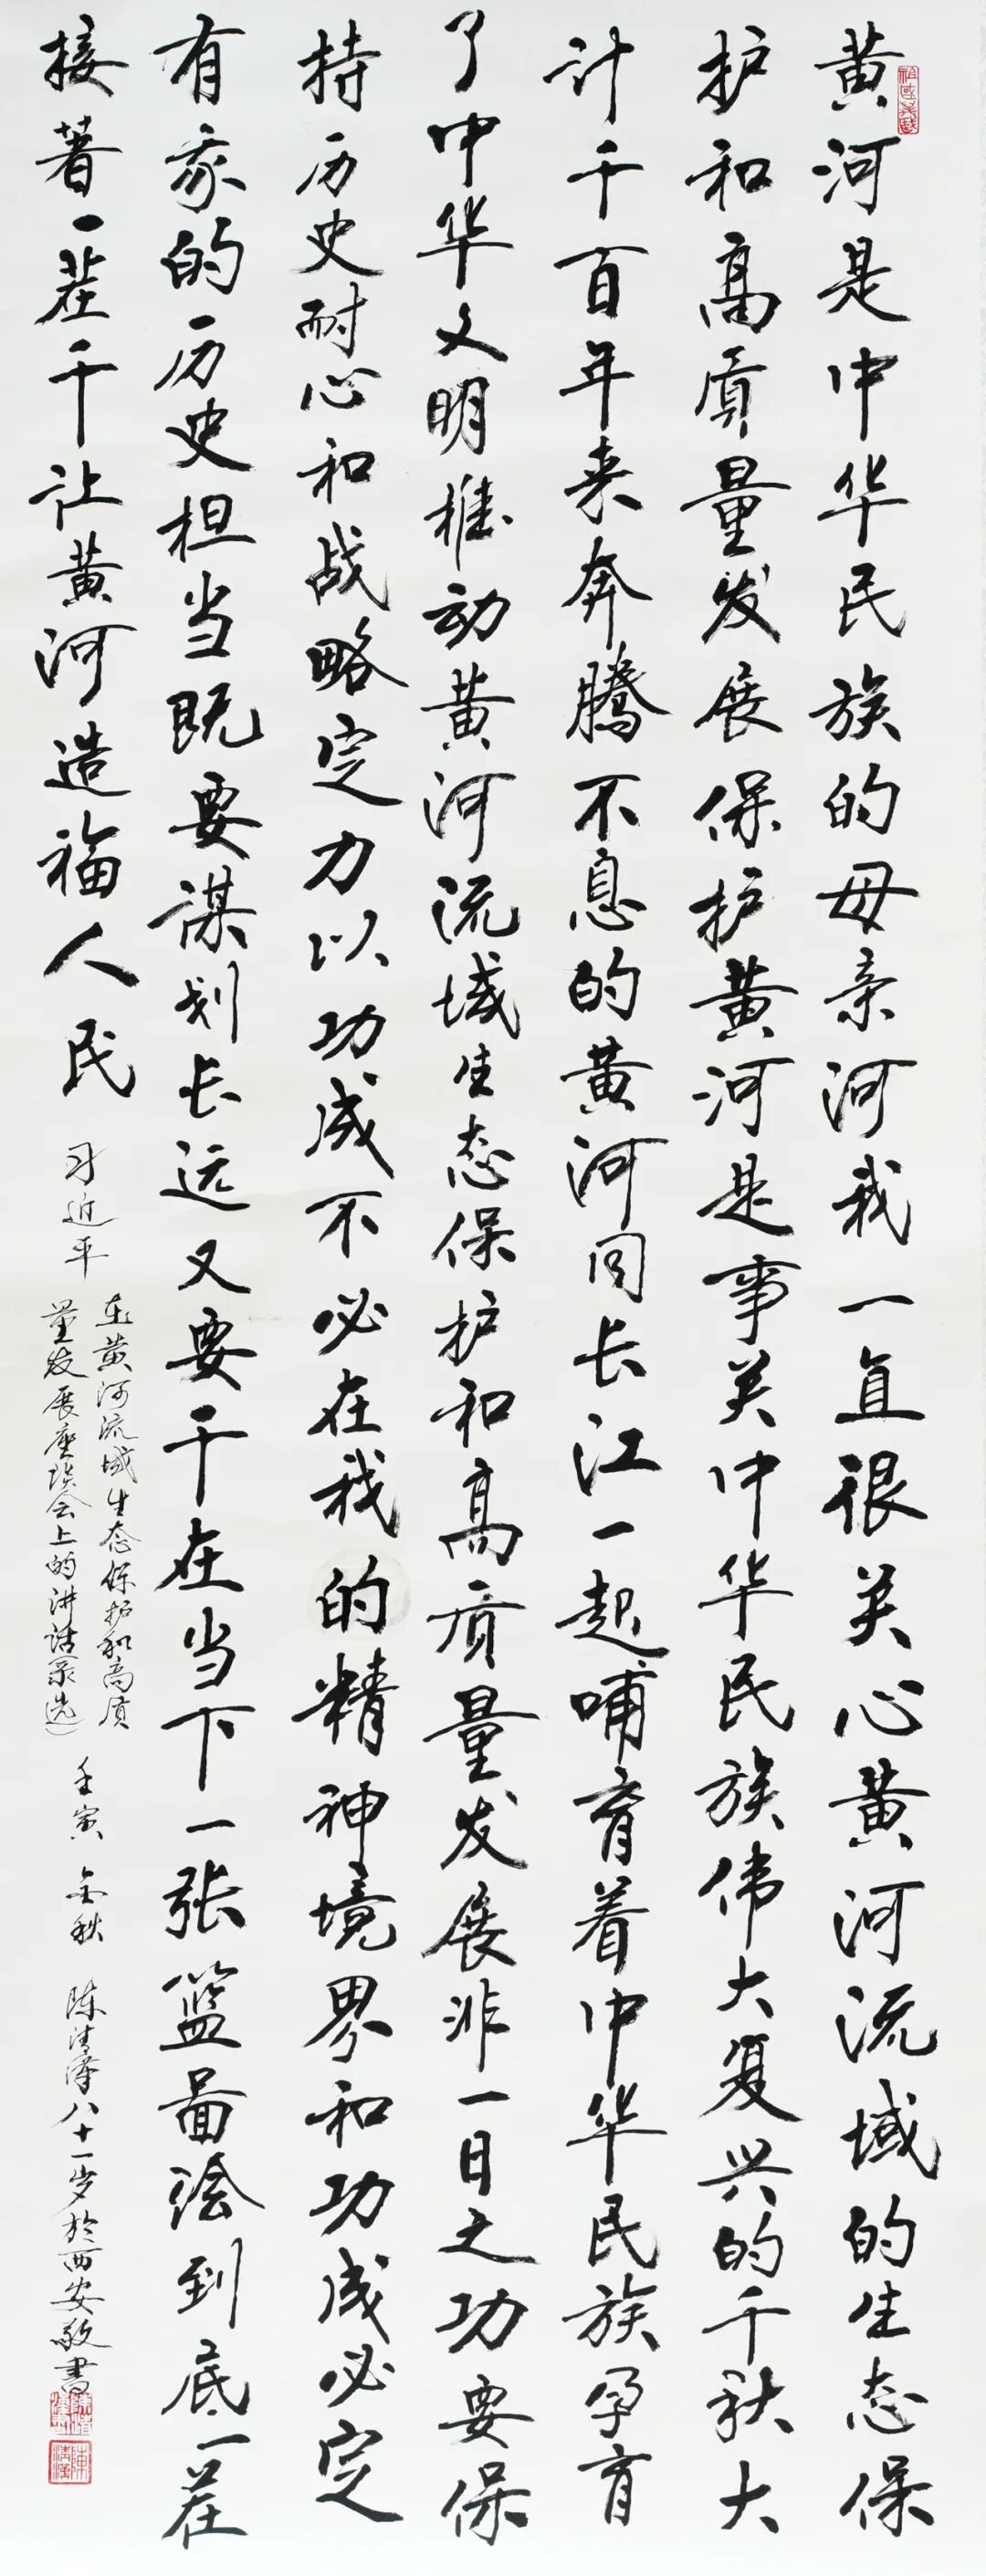 黄河是中华民族的母亲河我一直很关心黄河流域的生态保
护和高质量发展保护黄河是事关中华民族伟大复兴的千秋大
计千百年来奔腾不息的黄河同长江一起哺育着中华民族孕育
了中华文明推动黄河流域生态保护和高质量发展非一日之功要保
持历史耐心和战略定力以功成不必在我的精神境界和功成必定
有我的历史担当既要谋划长远又要干在当下一张蓝图绘到底一茬
接著一茬干让黄河造福人民
习近平
在黄河流域生态保护和高质
量发展座谈会上的讲话录选)
壬寅 金秋 陈清漢八十一岁於西安敬書